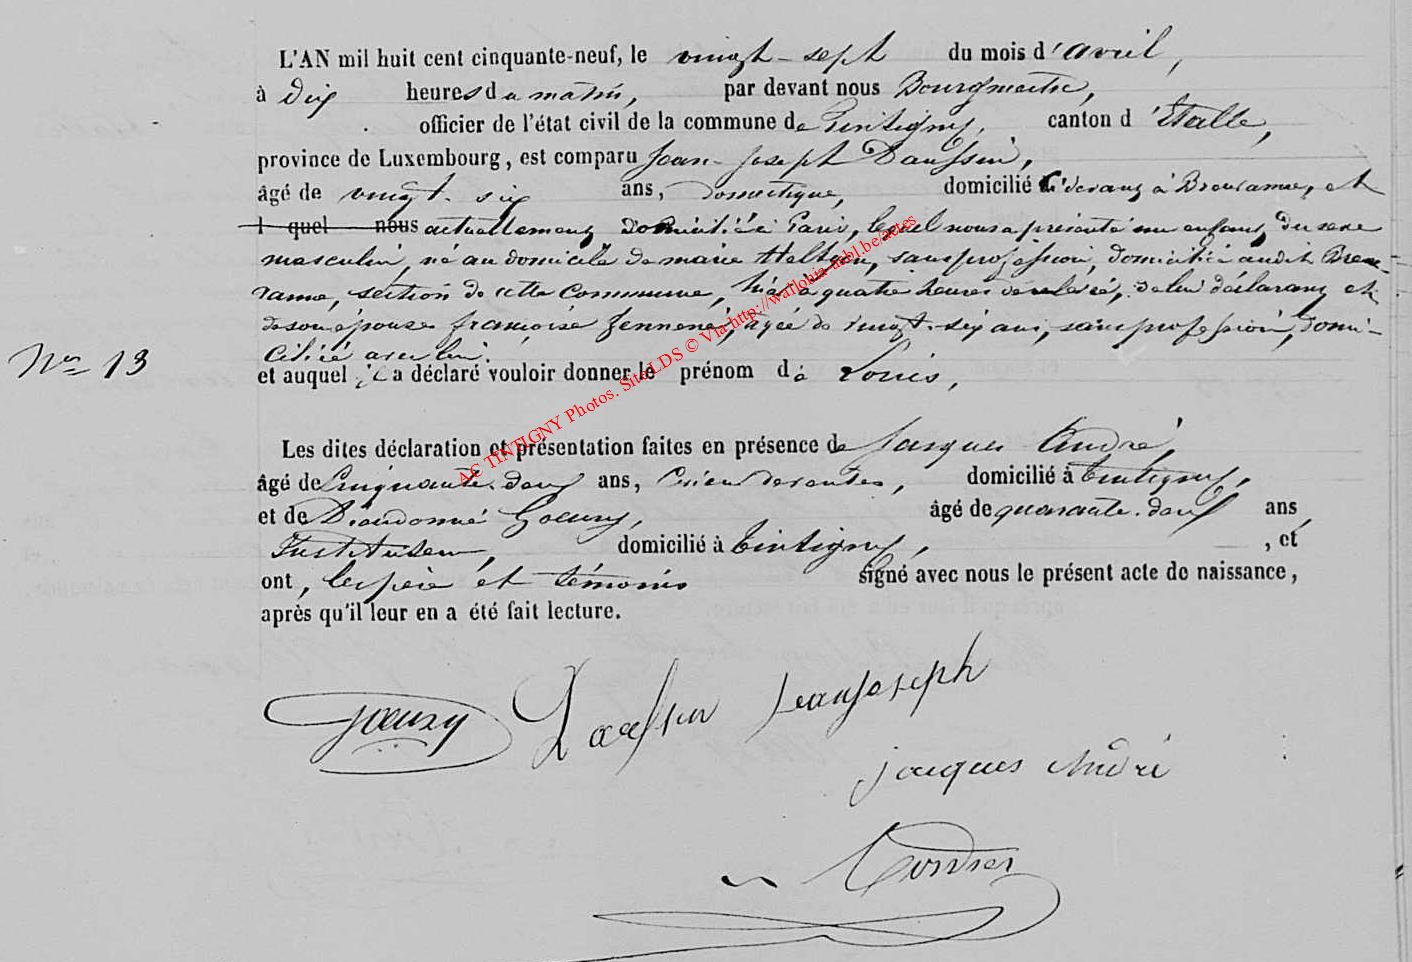 L'AN mil huit cent cinquante-neuf, le vingt-sept du mois d'avril,
à Dix heures du matin, par devant nous Bourgmestre,
officier de l'état civil de la commune de Tintigny, canton d'Etalle,
province de Luxembourg, est comparu Jean-Joseph
âgé de vingt-six ans, Domestique, domicilié ci devant à Breuvanne, et
l quel nous actuellement Domicilié à Paris, lequel nous a présenté un enfant du sexe
masculin, né au domicile de marie, sans profession, domiciliée audit Breu-
vanne, section de cette Commune, hier à quatre heures de relevée, de lui déclarant et
de son épouse françoise, âgée de vingt-six ans, sans profession, domi-
ciliée avec lui.
Nos 13
et auquel il a déclaré vouloir donner le prénom de Louis,
Les dites déclaration et présentation faites en présence de Jacques André,
âgé de Cinquante-deux ans, domicilié à Tintigny,
et de Dieudonné Goeury, âgé de quarante-deux ans
Instituteur, domicilié à Tintigny, , et
ont, les père et témoins signé avec nous le présent acte de naissance,
après qu'il leur en a été fait lecture.
AC TINTIGNY Photos. Site LDS © Via http://wallonia-asbl.be/actes
Goeury Jean joseph
jacques André